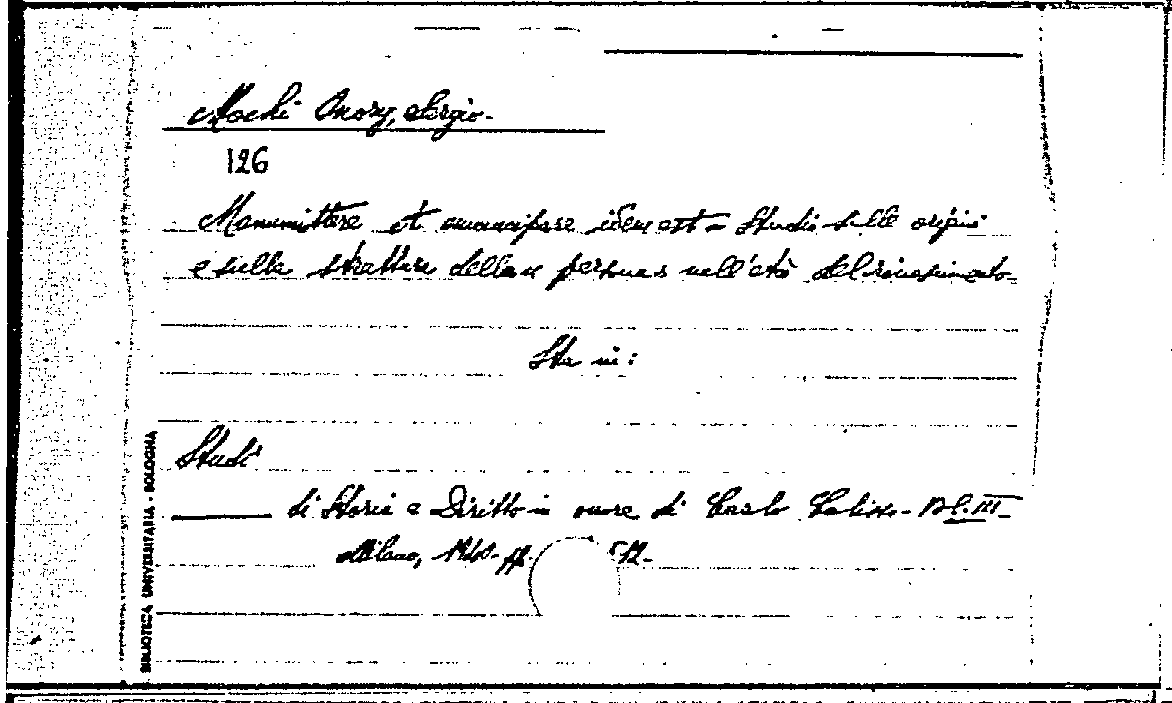 Mochi Onory, Sergio.
126
Manumittere et emancipare idem est = Studi sulle origini
e sulla struttura della persona nell'età del rinascimento
Sta in:
Studi
di Storia e Diritto in onore di Carlo Calisse - Vol. III
Milano, pp.
BIBLIOTECA UNIVERSITARIA - BOLOGNA